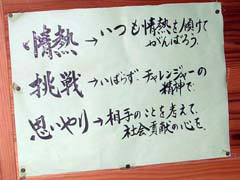 情熱→いつも情熱を傾けて
がんばろう。
挑戦→いばらず、チャレンジャーの
精神で
思いやり→相手のことを考えて、
社会貢献の心を。